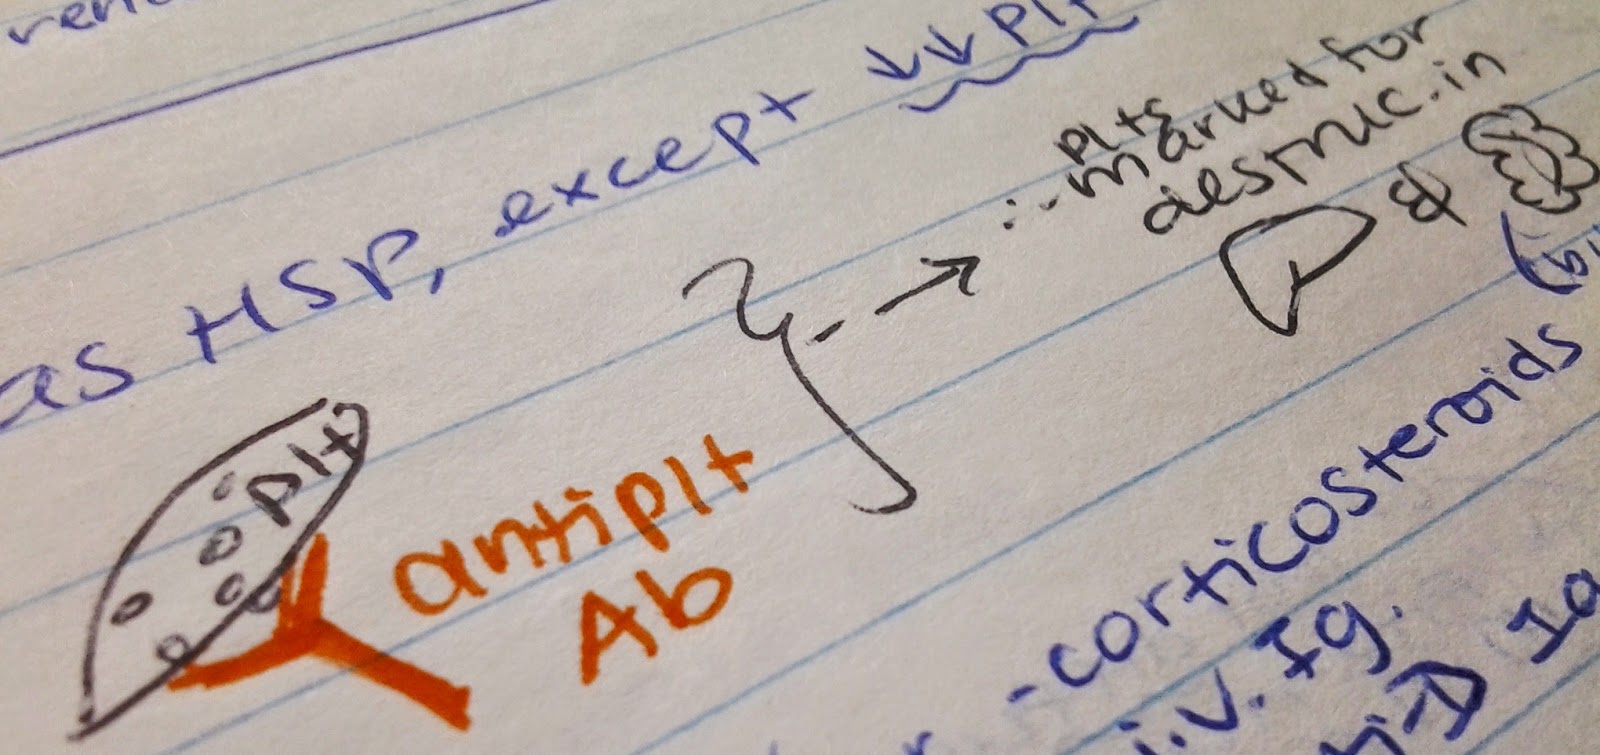 as HSP, except ↓↓ Plt
∴ plts
marked for
destruc. in
&
plt
antiplt
Ab
-corticosteroids
i.v. Ig.